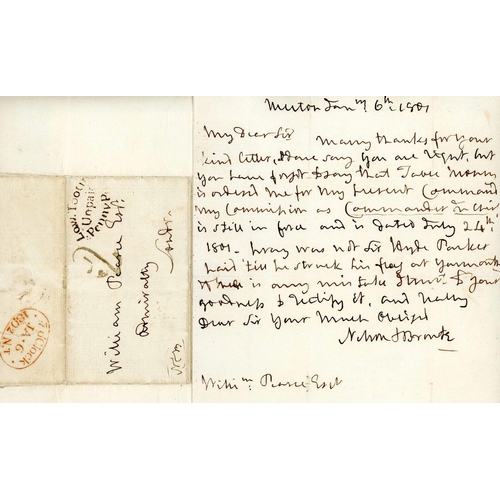 Merton Janry 6th 1801
My Dear Sir Many thanks for your
kind letter, I dare say you are right, but
you have forgot to say that Table Money
is ordered me for my present Command
my Commission as Commander in Chief
is still in force and is dated July 24th
1801. pray was not Sir Hyde Parker
paid till he struck his flag at Yarmouth
if there is any mistake I trust to your
goodness to rectify it, and really
Dear Sir your Much Obliged
Nelson & Bronte
Willim Pearce Esqr
William Pearce Esqr.
Admiralty
London
Unpaid
Penny P
O'CLOCK
JA 6
1802 NT